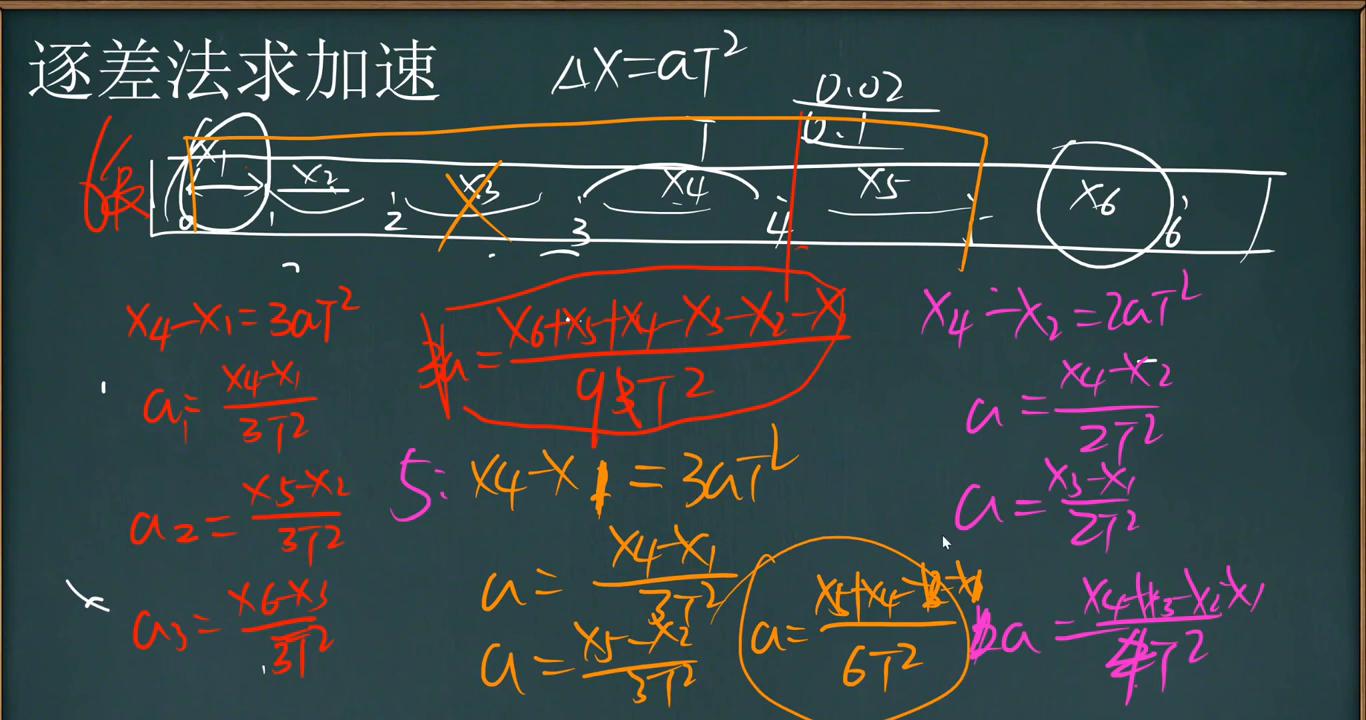 逐差法求加速
ΔX=aT²
0.02
0.1
T
6段
X₁ X₂ X₃ X₄ X₅ X₆
0 1 2 3 4 6
X₄-X₁=3aT²
a₁=(X₄-X₁)/3T²
a₂=(X₅-X₂)/3T²
a₃=(X₆-X₃)/3T²
a=(X₆+X₅+X₄-X₃-X₂-X₁)/9T²
5:
X₄-X₁=3aT²
a=(X₄-X₁)/3T²
a=(X₅-X₂)/3T²
a=(X₅+X₄-X₂-X₁)/6T²
X₄-X₂=2aT²
a=(X₄-X₂)/2T²
a=(X₃-X₁)/2T²
a=(X₄+X₃-X₂-X₁)/4T²